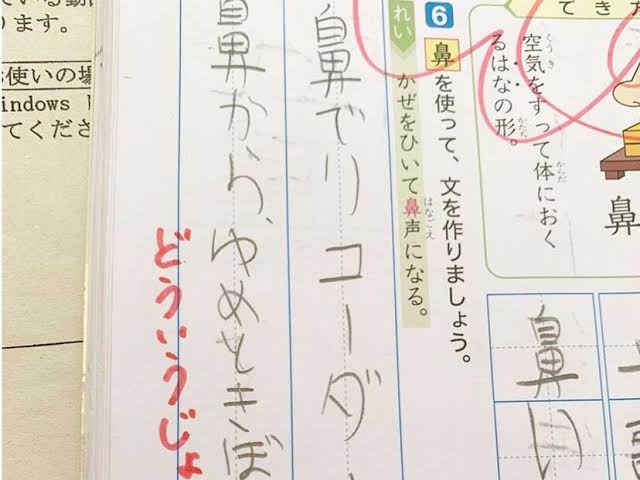 てきオ
空気をすって体におく
るはなの形。
くうき
からだ
かたち
鼻
6
鼻を使って、文を作りましょう。
れい
かぜをひいて鼻声になる。
はなごえ
鼻い
鼻でリコーダー
鼻から、ゆめときぼ
どういうじょ
ります。
使いの場
indows
てくださ